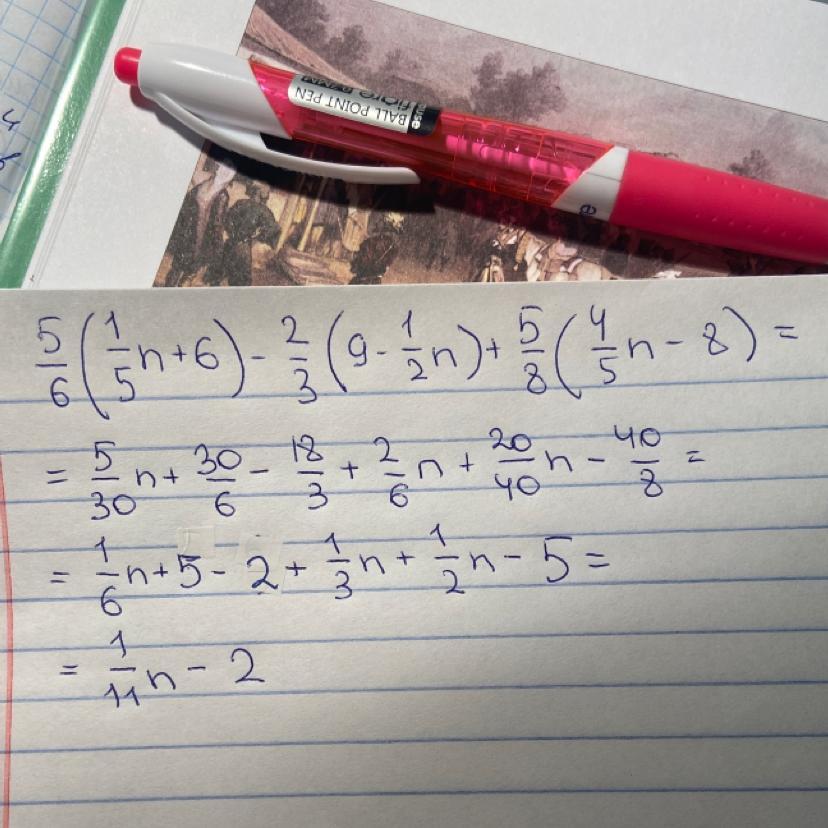 BALL POINT PEN
\frac{5}{6}(\frac{1}{5}n+6)-\frac{2}{3}(9-\frac{1}{2}n)+\frac{5}{8}(\frac{4}{5}n-8)=
=\frac{5}{30}n+\frac{30}{6}-\frac{18}{3}+\frac{2}{6}n+\frac{20}{40}n-\frac{40}{8}=
=\frac{1}{6}n+5-2+\frac{1}{3}n+\frac{1}{2}n-5=
=\frac{1}{11}n-2